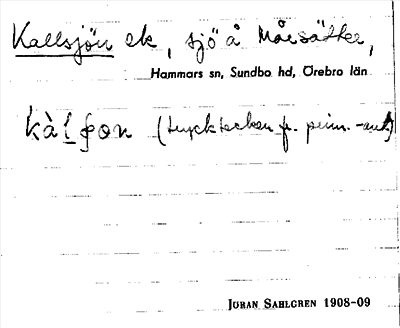 Kallsjön ek, sjö å Mårsätter,
Hammars sn, Sundbo hd, Örebro län
(trycktecken fr. prim.-ant.)
JÖRAN SAHLGREN 1908-09